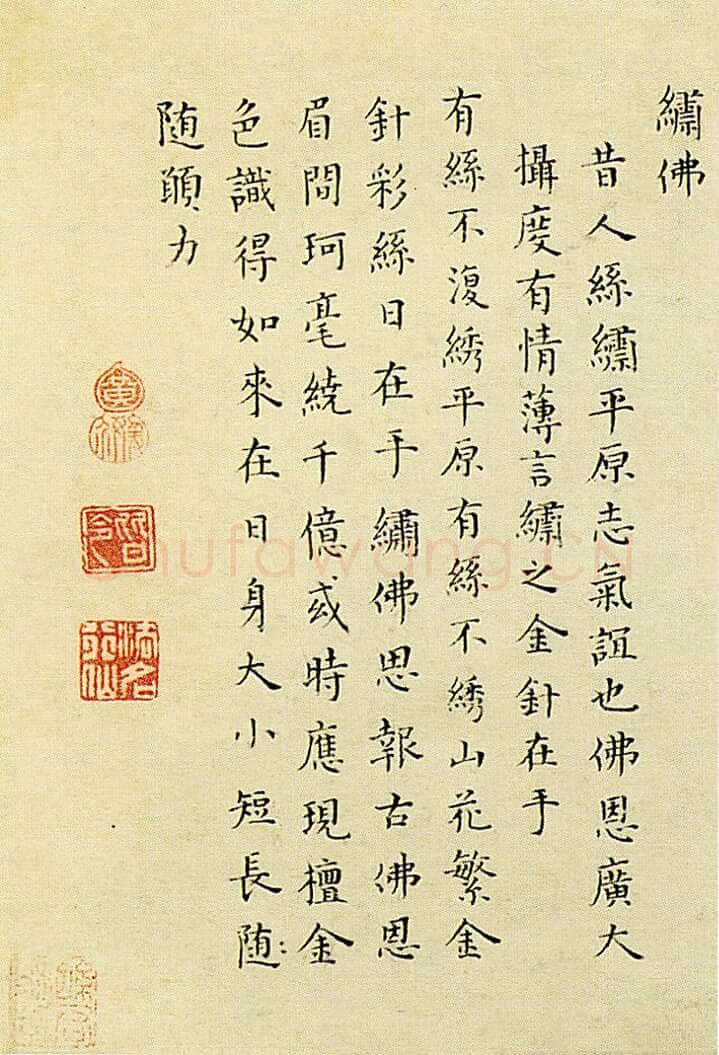 繡佛
昔人絲繡平原志氣誼也佛恩廣大
攝度有情薄言繡之金針在手
有絲不復綉平原有絲不綉山花繁金
針彩絲日在手繡佛思報古佛恩
眉間珂毫繞千億或時應現檀金
色識得如來在日身大小短長随:
随願力
shufawang.CN